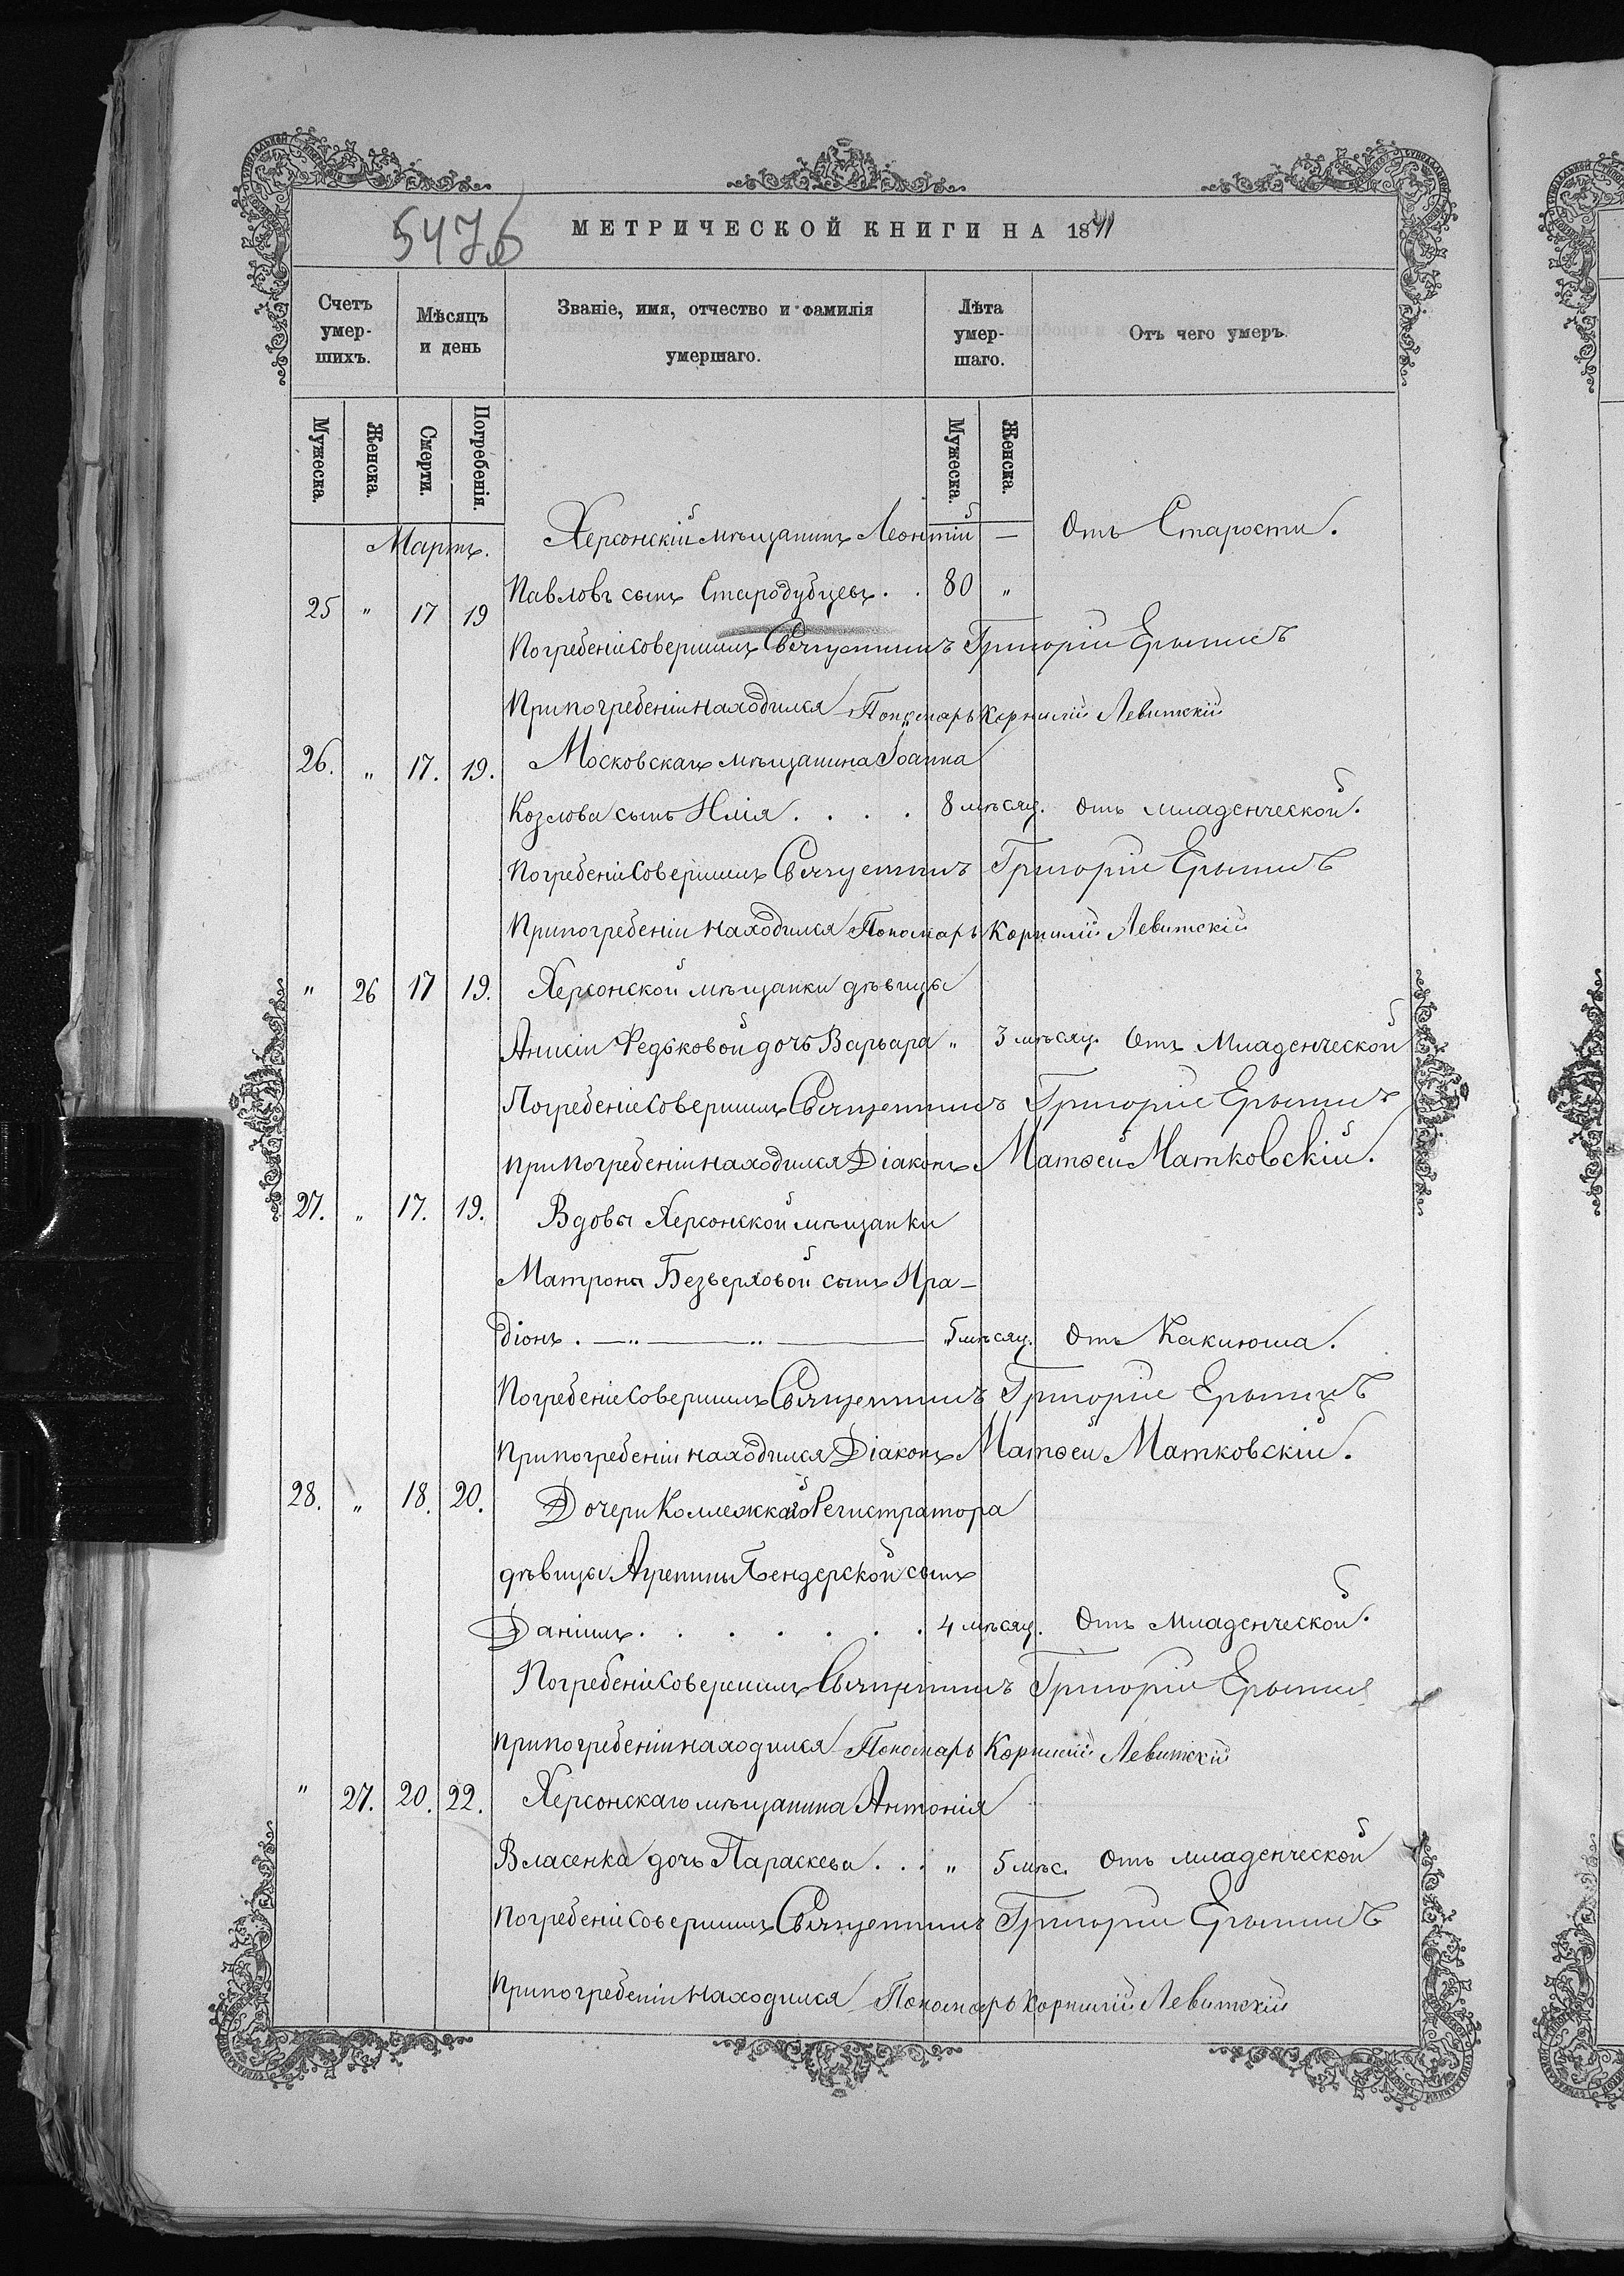 547б
МЕТРИЧЕСКОЙ КНИГИ НА 1871
Счетъ умер-шихъ.
Мѣсяцъ и день
Званіе, имя, отчество и фамилія умершаго.
Лѣта умер-шаго.
Отъ чего умеръ
Мужеска. Женска. Смерти. Погребенія. Мужеска. Женска.
Мартъ. Херсонскій мѣщанинъ Леонтій — Отъ Старости.
25 „ 17 19 Павловъ сынъ Стародубцевъ . . 80 „
Погребеніе совершилъ Священникъ Григорій
При погребеніи находился Пономарь Корнилій Левитскій
26. „ 17. 19. Московскаго мѣщанина Іоанна
Козлова сынъ Илія . . . . 8 мѣсяц. Отъ младенческой.
Погребеніе совершилъ Священникъ Григорій
При погребеніи находился Пономарь Корнилій Левитскій
„ 26 17 19. Херсонской мѣщанки дѣвицы
Анисіи Федьковой дочь Варвара „ 3 мѣсяц. Отъ Младенческой
Погребеніе совершилъ Священникъ Григорій
При погребеніи находился Діаконъ Матѳей Матковскій.
27. „ 17. 19. Вдовы Херсонской мѣщанки
Матроны Безверховой сынъ Ира-
діонъ. —„——„—— 5 мѣсяц. Отъ Каклюша.
Погребеніе совершилъ Священникъ Григорій
При погребеніи находился Діаконъ Матѳей Матковскій.
28. „ 18. 20. Дочери Коллежскаго Регистратора
дѣвицы Агрепины Бендерской сынъ
Даніилъ . . . . . . . 4 мѣсяц. Отъ Младенческой.
Погребеніе совершилъ Священникъ Григорій
При погребеніи находился Пономарь Корнилій Левитскій
„ 27. 20. 22. Херсонскаго мѣщанина Антонія
Власенка дочь Параскева . . „ 5 мѣс. Отъ младенческой
Погребеніе совершилъ Священникъ Григорій
При погребеніи находился Пономарь Корнилій Левитскій